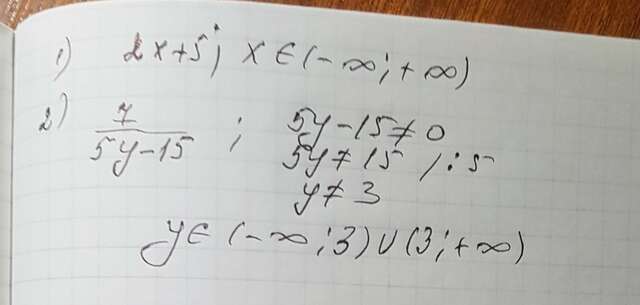 1) 2x+5; x∈(-∞;+∞)
2) 7/(5y-15); 5y-15≠0
5y≠15 /:5
y≠3
y∈(-∞;3)∪(3;+∞)